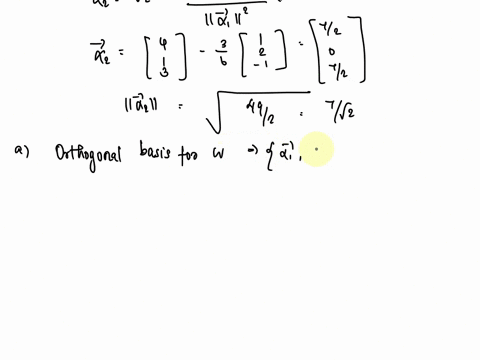 α⃗₂ = ‖α⃗₁‖²
α⃗₂ = [4 1 3] - 3/6 [1 2 -1] = [7/2 0 7/2]
‖α⃗₂‖ = √(49/2) = 7/√2
a) Orthogonal basis for W => {α⃗₁,